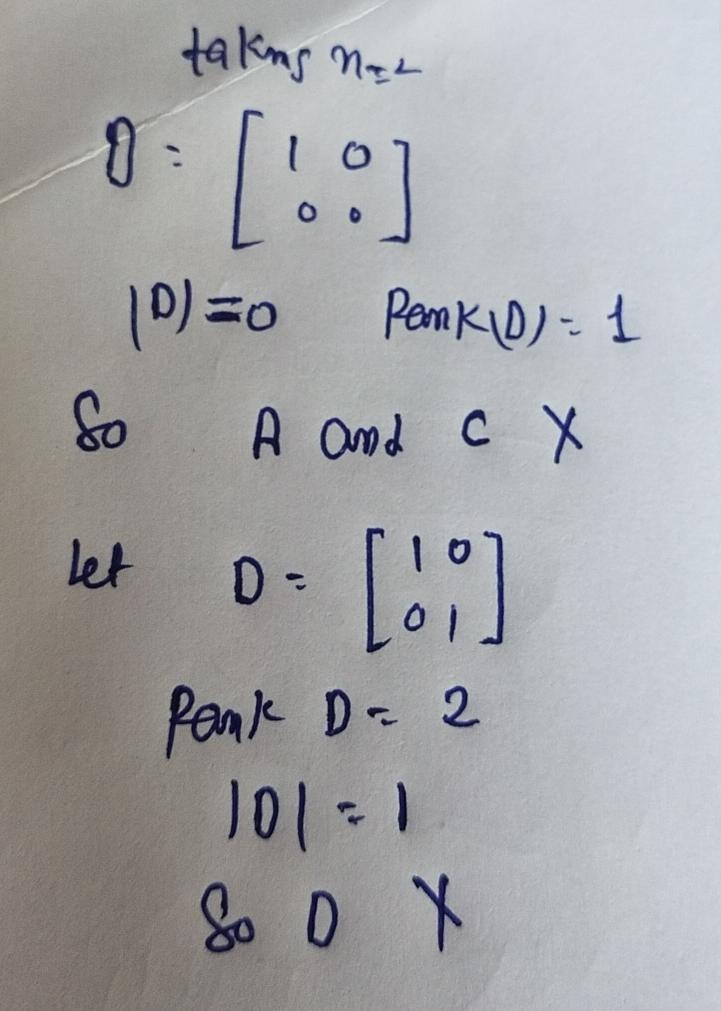 taking n=2
D = [ 1 0
0 0 ]
|D| = 0 Rank(D) = 1
So A and C X
Let D = [ 1 0
0 1 ]
Rank D = 2
|D| = 1
So D X